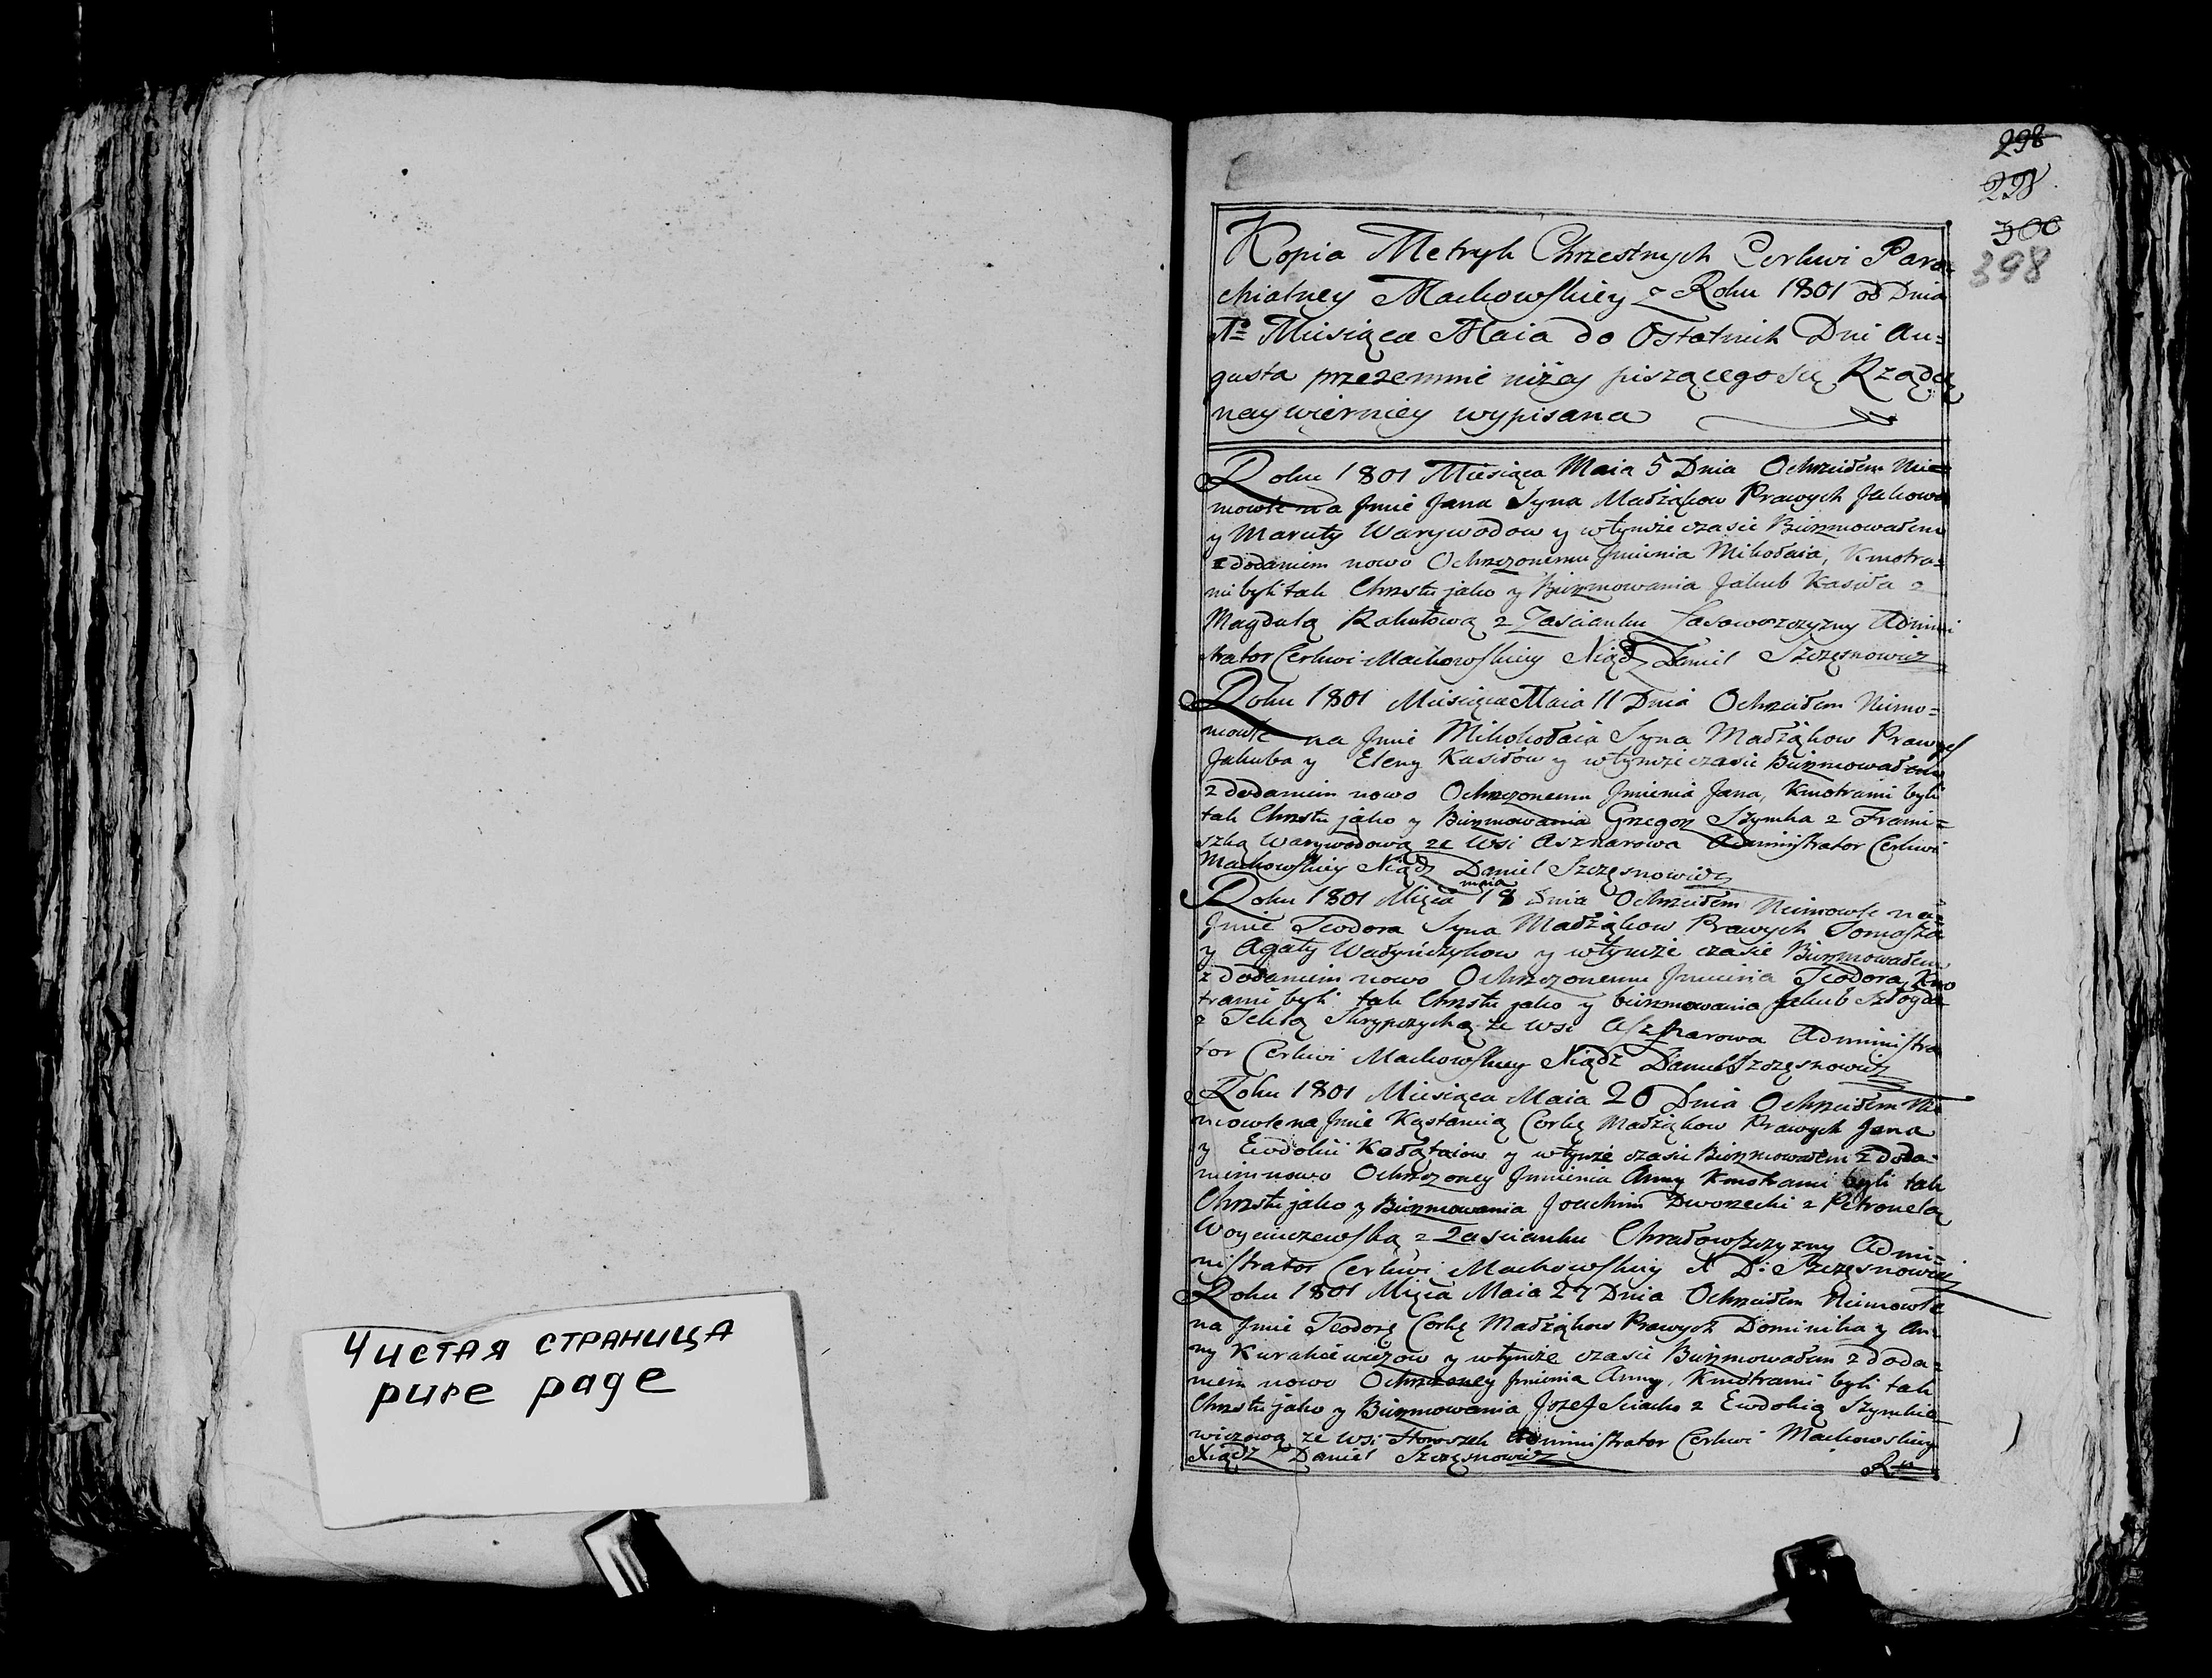 Чистая страница
pure page
298
298
300
398
Kopia Metryk Chrzestnych Cerkwi Para=
chialney Mackowskiey z Roku 1801 od Dnia
1º Miesiąca Maia do Ostatnich Dni Au=
gusta przezemnie niżey piszącego się Rządcę
naywierniey wypisana
Roku 1801 Miesiąca Maia 5 Dnia Ochrzciłem Nie=
mowle na Jmie Jana Syna Małżąkow Prawych Jakowa
y Maruty Warywodow y wtymże czasie Birzmowałem
z dodaniem nowo Ochrzczonemu Jmienia Mikołaia, Kmotra=
mi byli tak Chrztu jako y Birzmowania Jakub Kasiła z
Magdułą Rakutową z Zascianku Administ
trator Cerkwi Mackowskiey Xiądz Daniel Szczęsnowicz
Roku 1801 Miesiąca Maia 11 Dnia Ochrzciłem Niemo=
mowle na Jmie Mikokołaia Syna Małżąkow Prawych
Jakuba y Eleny Kasiłow y wtymże czasie Birzmowałem
z dodaniem nowo Ochrzczonemu Jmienia Jana, Kmotrami byli
tak Chrztu jako y Birzmowania Grzegorz Szymka z Franci=
szką Warywodową ze Wsi Asznarowa Administrator Cerkwi
Mackowskiey Xiądz Daniel Szczęsnowicz
Roku 1801 Mięca maia 18 Dnia Ochrzciłem Niemowle na=
Jmie Teodora Syna Małżąkow Prawych Tomasza
y Agaty Wałyńczykow y wtymże czasie Birzmowałem
z dodaniem nowo Ochrzczonemu Jmienia Teodora, Kmo
trami byli tak Chrztu jako y birzmowania Jakub Szłoyda
z Teklą Skrypczychą ze wsi Asznarowa Administra
tor Cerkwi Mackowskiey Xiądz Daniel Szczęsnowicz
Roku 1801 Miesiąca Maia 20 Dnia Ochrzciłem Nie
mowle na Jmie Kąstancią Corkę Małżąkow Prawych Jana
y Ewdokii Kołątaiow y wtymże czasie Birzmowałem z doda=
niem nowo Ochrzczoney Jmienia Anny Kmotrami byli tak
Chrztu jako y Birzmowania Joachim Dworzecki z Petronelą
Woyciuczewską z Zascianku Chradowszczyzny Admi=
nistrator Cerkwi Mackowskiey X D: Szczęsnowicz
Roku 1801 Mięca Maia 27 Dnia Ochrzciłem Niemowle
na Jmie Teodorę Corkę Małżąkow Prawych Dominika y An=
ny Kurakiewiczow y wtymże czasie Birzmowałem z doda=
niem nowo Ochrzczoney Jmienia Anny, Kmotrami byli tak
Chrztu jako y Birzmowania Jozef Sciacko z Ewdokią Szymkie
wiczową ze Wsi Administrator Cerkwi Mackowskiey
Xiądz Daniel Szczęsnowicz